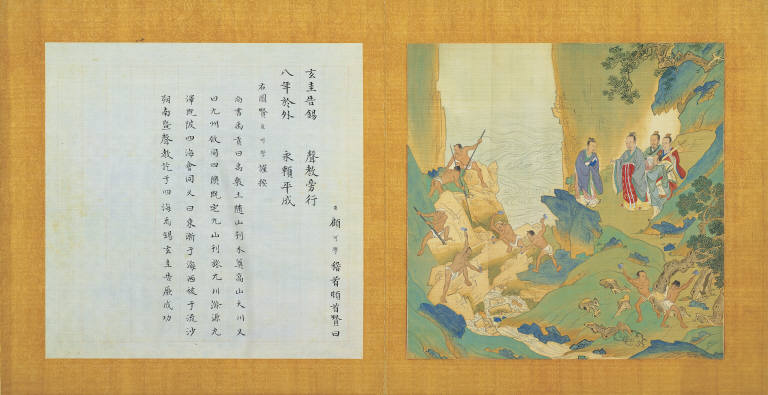 臣顧可學稽首頓首贊曰
玄圭告錫 聲教旁行
八年於外 永賴平成
右圖贊臣可學謹按
尚書禹貢曰禹敷土隨山刊木奠高山大川又
曰九州攸同四隩既宅九山刊旅九川滌源九
澤既陂四海會同又曰東漸于海西被于流沙
朔南暨聲教訖于四海禹錫玄圭告厥成功